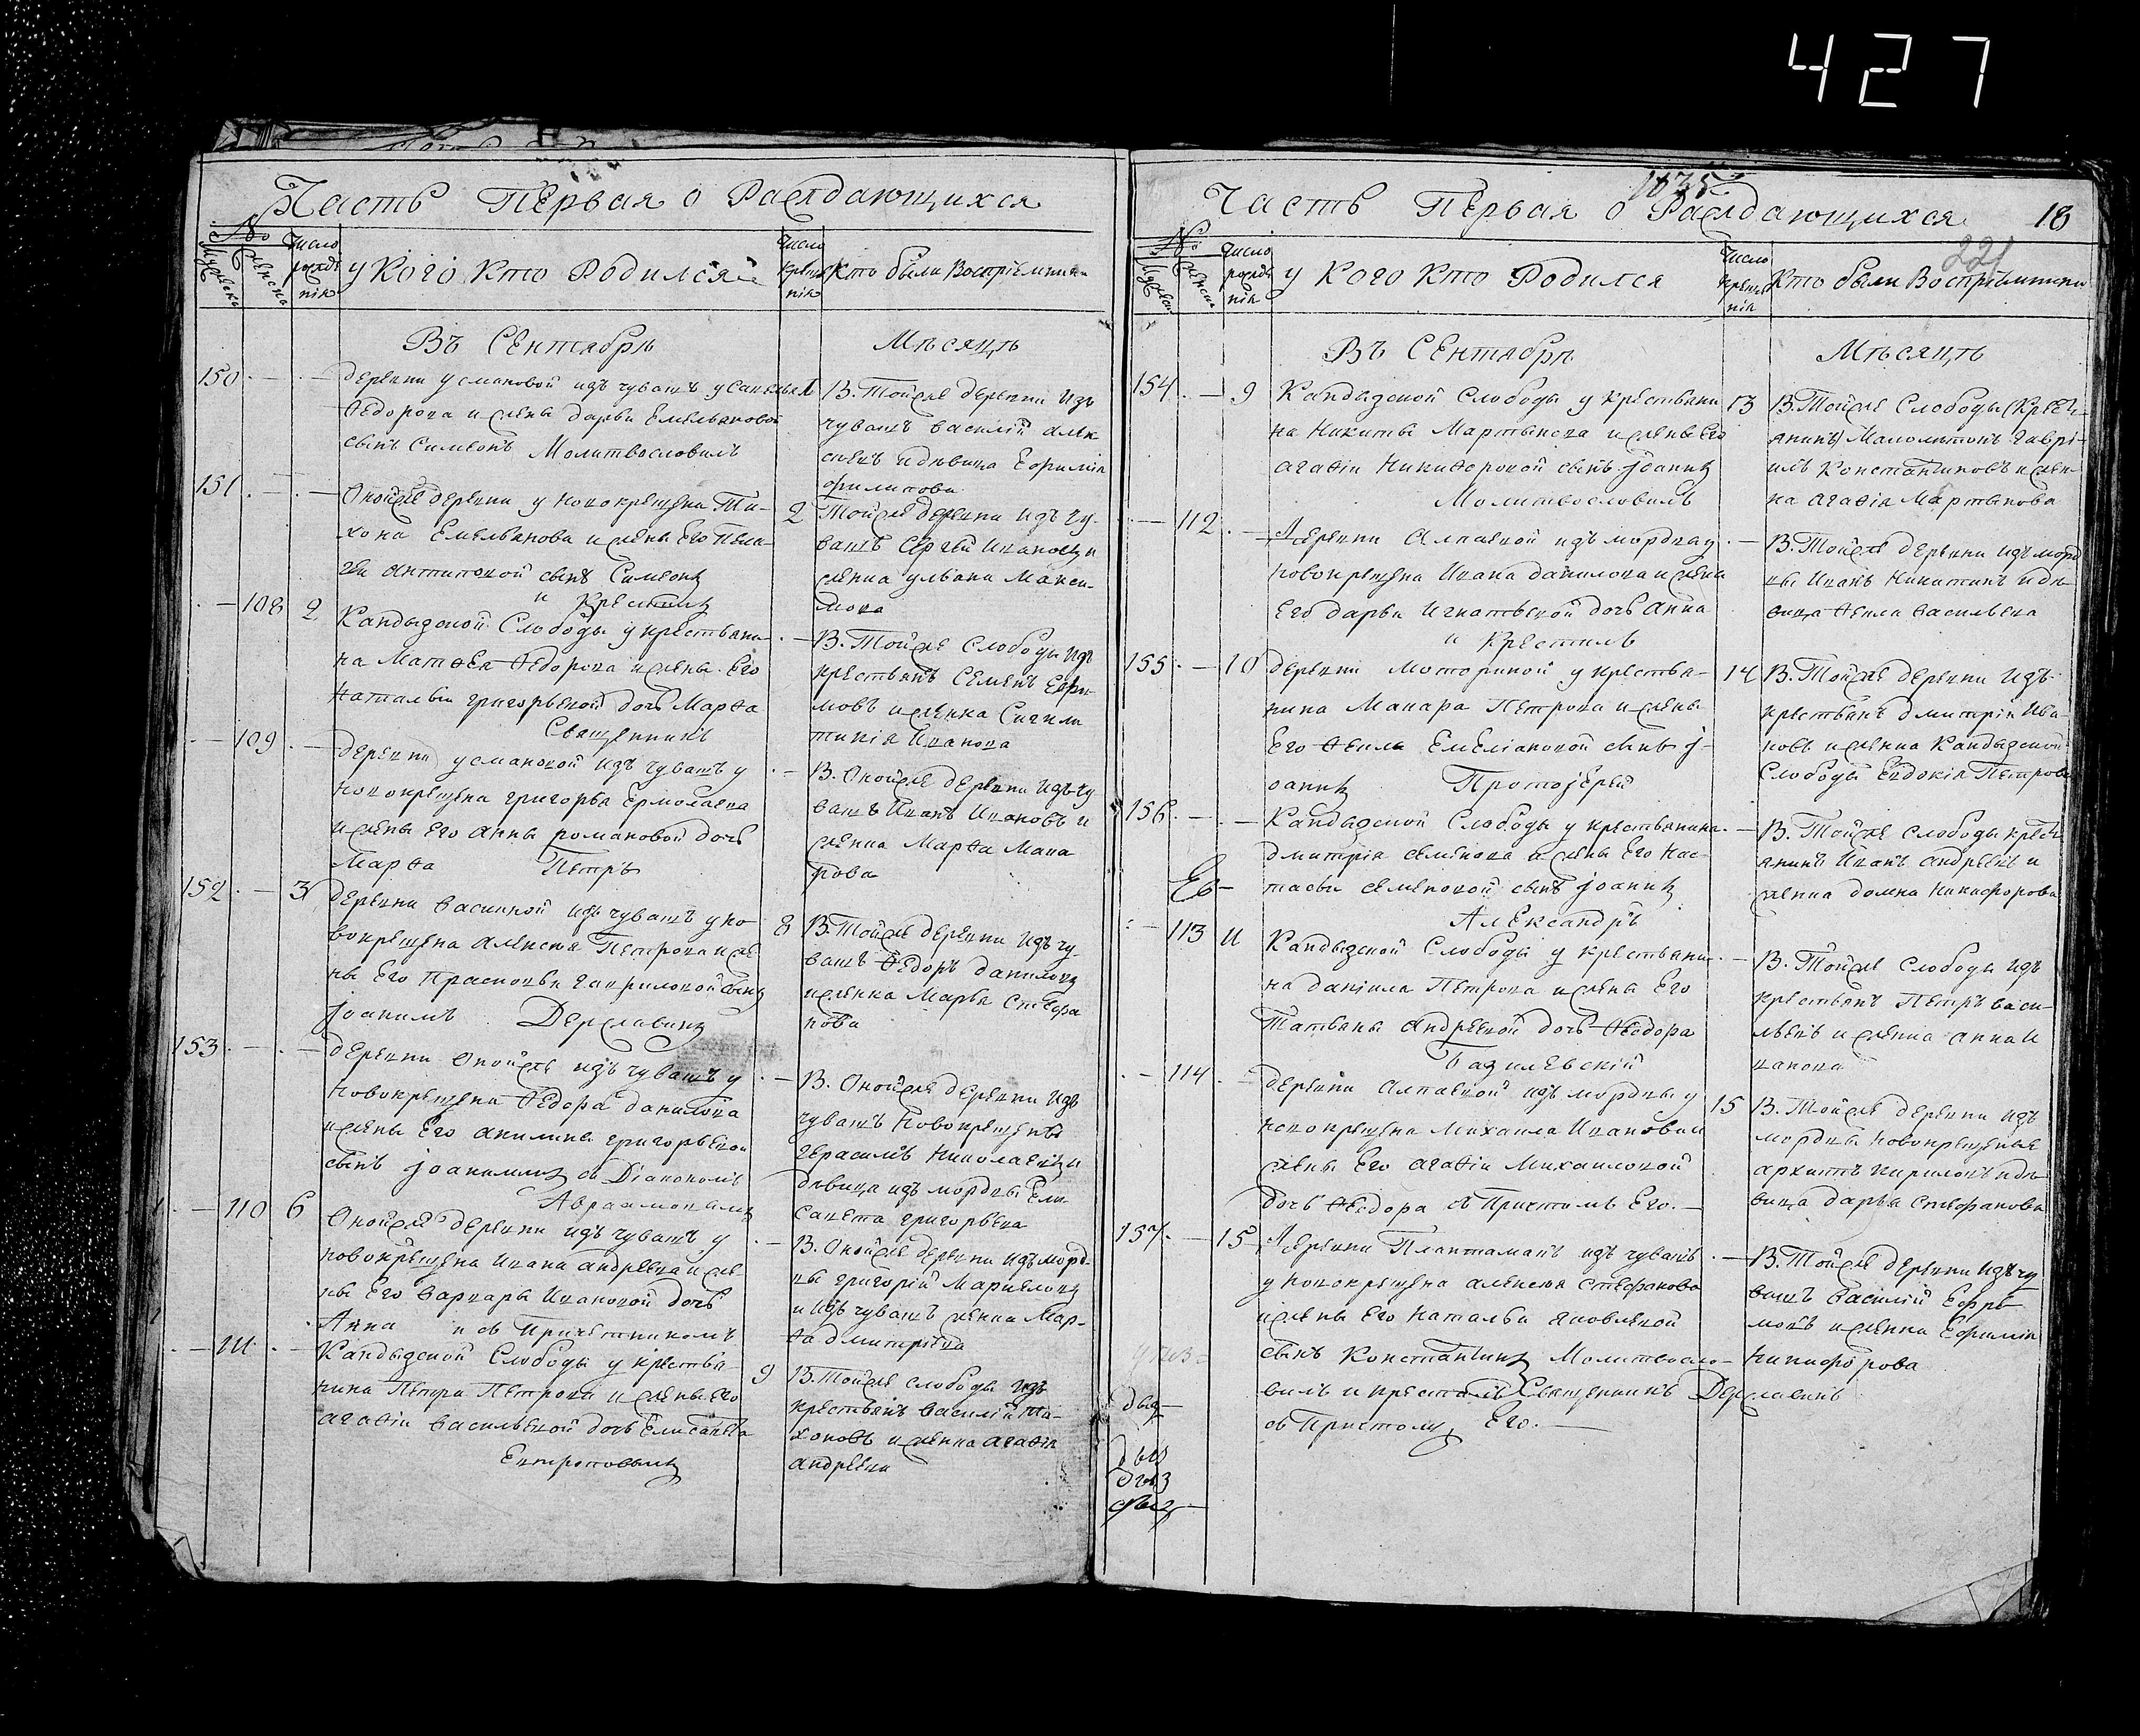 427
Часть Первая о Раждающихся
№
Мужеска
Женска
Число рожденія
у Кого Кто Родился
Число крещенія
Кто были Воспріемники
Въ Сентябрѣ
Мѣсяцѣ
150
деревни Усмановой изъ чувашъ у Савелья
Ѳедорова и жены дарьи Емельяновой
сынъ Симеонъ Молитвословилъ
В. Тойже деревни изъ
чувашъ василій алек
сѣевъ и дѣвица Евфимія
филипова
151
Онойже деревни у новокрещена Ти-
хона Емельянова и жены Его Пела-
геи антиповой сынъ Симеонъ
и Крестилъ
2
Тойже деревни изъ чу-
вашъ Сергѣй Ивановъ и
женка ульяна Макси-
мова
108
2
Кандызской Слободы у крестьяни-
на Матѳея Ѳедорова и жены Его
Натальи григорьевой дочь Марѳа
Священникъ
В. Тойже Слободы изъ
крестьянъ Семенъ Ефи-
мовъ и женка Сигили
тикія Иванова
109
деревни усмановой изъ чувашъ у
новокрещена григорья Ермолаева
и жены Его анны романовой дочь
Марѳа Петръ
В. Онойже деревни изъ чу
вашъ Иванъ Ивановъ и
женка Марѳа Мака
рова
152
3
деревни васкиной изъ чувашъ у но-
вокрещена алексея Петрова и же
ны Его Прасковьи гавриловой сынъ
Іоакимъ Державинъ
8
В. Тойже деревни изъ чу-
вашъ Ѳедоръ даниловъ
и женка Марья Стефа
нова
153
деревни Онойже изъ чувашъ у
новокрещена Ѳедора данилова
и жены Его акилины григорьевой
сынъ Іоакимъ съ Діакономъ
Авраамовымъ
В. Онойже деревни изъ
чувашъ новокрещены
герасимъ николаевъ и
дѣвица изъ мордвы Ели
савета григорьева
110
6
Онойже деревни изъ чувашъ у
новокрещена ивана андреева и же-
ны Его варвары Ивановой дочь
Анна и съ Причетникомъ
В. Онойже деревни изъ морд-
вы григорій
и изъ чувашъ женка Мар-
ѳа дмитріева
111
Кандызской Слободы у крестья-
нина Петра Петрова и жены Его
агаѳіи васильевой дочь Елисавета
Евтроповымъ
9
В. Тойже слободы изъ
крестьянъ василій Ти-
хоновъ и женка агаѳія
андреева
1835
Часть Первая о Раждающихся
18
221
№
Число рожденія
у Кого Кто Родился
Число крещенія
Кто были Воспріемники
Въ Сентябрѣ
Мѣсяцѣ
154
9
Кандызской Слободы у крестьяни
на Никиты Мартынова и жены Его
агаѳіи Никифоровой сынъ Іоаннъ
Молитвословилъ
13
В. Тойже Слободы (Кресть-
янинъ) гаврі-
илъ Константиновъ и жен-
ка агаѳія Мартынова
112
Деревни Алпаевой изъ мордвы у
новокрещена Ивана данилова и жены
Его дарьи Игнатьевой дочь анна
и Крестилъ
В. Тойже деревни изъ морд
вы Иванъ Никитинъ и дѣ-
вица Ѳекла васильева
155
10
деревни Моториной у крестья-
нина Макара Петрова и жены
Его Ѳеклы Емеліановой сынъ І-
оаннъ Протоіерей
14
В. Тойже деревни изъ
крестьянъ дмитрій Ива-
новъ и женка Кандызской
Слободы Евдокія Петрова
156
Кандызской Слободы у крестьянина
дмитрія семенова и жены Его нас-
тасьи семеновой сынъ Іоаннъ
Александръ
В. Тойже слободы кресть
янинъ Иванъ андреевъ и
женка домна никифорова
113
11
Кандызской Слободы у крестьяни-
на даніила Петрова и жены Его
Татьяны андреевой дочь Ѳеодора
Базилевскій
В. Тойже Слободы изъ
крестьянъ Петръ васи-
льевъ и женка анна и
ванова
114
деревни алпаевой изъ мордвы у
новокрещена Михаила Иванова и
жены Его агаѳіи Михаиловой
дочь Ѳеодора съ Причтомъ Его.
15
В. Тойже деревни изъ
мордвы новокрещеные
архипъ кириловъ и дѣ-
вица дарья стефанова
157
15
Деревни Плантаманъ изъ чувашъ
у новокрещена алексея Стефанова
и жены Его Натальи Яковлевой
сынъ Константинъ Молитвосло-
вилъ и крестилъ Священникъ Державинъ
съ Причтомъ Его.
В. Тойже деревни изъ чу
вашъ василій Ефре-
мовъ и женка Евфимія
никифорова